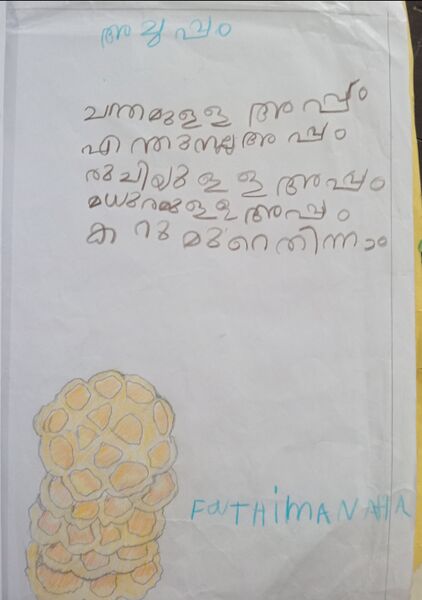 അച്ചപ്പം
ചന്തമുള്ള അപ്പം
എന്തുനല്ല അപ്പം
രുചിയുള്ള അപ്പം
മധുരമുള്ള അപ്പം
കറുമുറെതിന്നാം
FaTHimANAHA